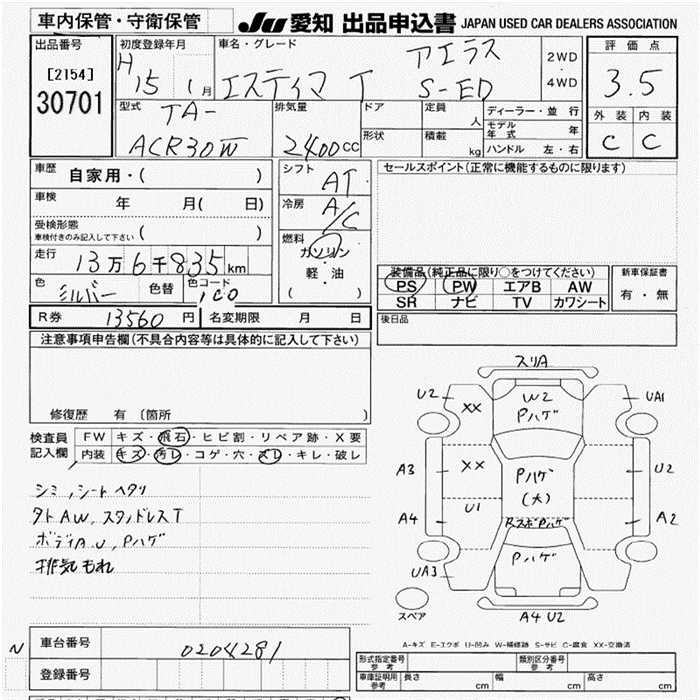 車内保管・守衛保管
JU 愛知 出品申込書 JAPAN USED CAR DEALERS ASSOCIATION
出品番号
[2154]
30701
初度登録年月
H 15 1月
車名・グレード
アエラス
エスティマ T S-ED
2WD
・
4WD
評価点
3.5
外装 内装
C C
型式
TA-
ACR30W
排気量
2400cc
ドア
形状
定員
人
積載
kg
ディーラー・並行
モデル年式 年
ハンドル 左・右
車歴 自家用・( )
車検 年 月(日)
受検形態
車検付きのみ記入して下さい ( )
走行 13万6千835km
色 シルバー 色替 色コード 1C0
シフト
AT
冷房
A/C
燃料
ガソリン
軽・油
( )
セールスポイント(正常に機能するものに限ります)
装備品(純正品に限り○をつけてください)
PS PW エアB AW
SR ナビ TV カワシート
新車保証書
有・無
R券 13560円 名変期限 月 日
後日品
注意事項申告欄(不具合内容等は具体的に記入して下さい)
修復歴 有 〔箇所 〕
検査員
記入欄
FW キズ・飛石・ヒビ割・リペア跡・X要
内装 キズ・汚レ・コゲ・穴・スレ・キレ・破レ
シミ,シートヘタリ
タトAW,スタッドレスT
ボディA.U,Pハゲ
排気もれ
スリA
U2
XX
W2
Pハゲ
UA1
A3
XX
Pハゲ
(大)
U2
A4
U1
RスポPハゲ
A2
Pハゲ
UA3
スペア
A4 U2
A-キズ E-エクボ U-凹み W-補修跡 S-サビ C-腐食 XX-交換済
N
車台番号 0204281
登録番号
形式指定番号
参考
類別区分番号
参考
車庫証明用
参考
長さ cm 幅 cm 高さ cm